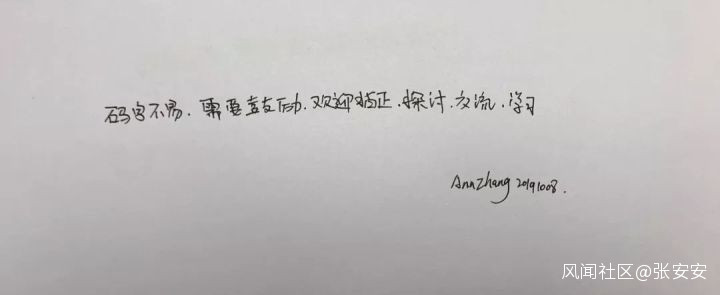 码字不易．需要鼓励．欢迎指正．探讨．交流．学习
AnnZhang 20191008.
风闻社区@张安安